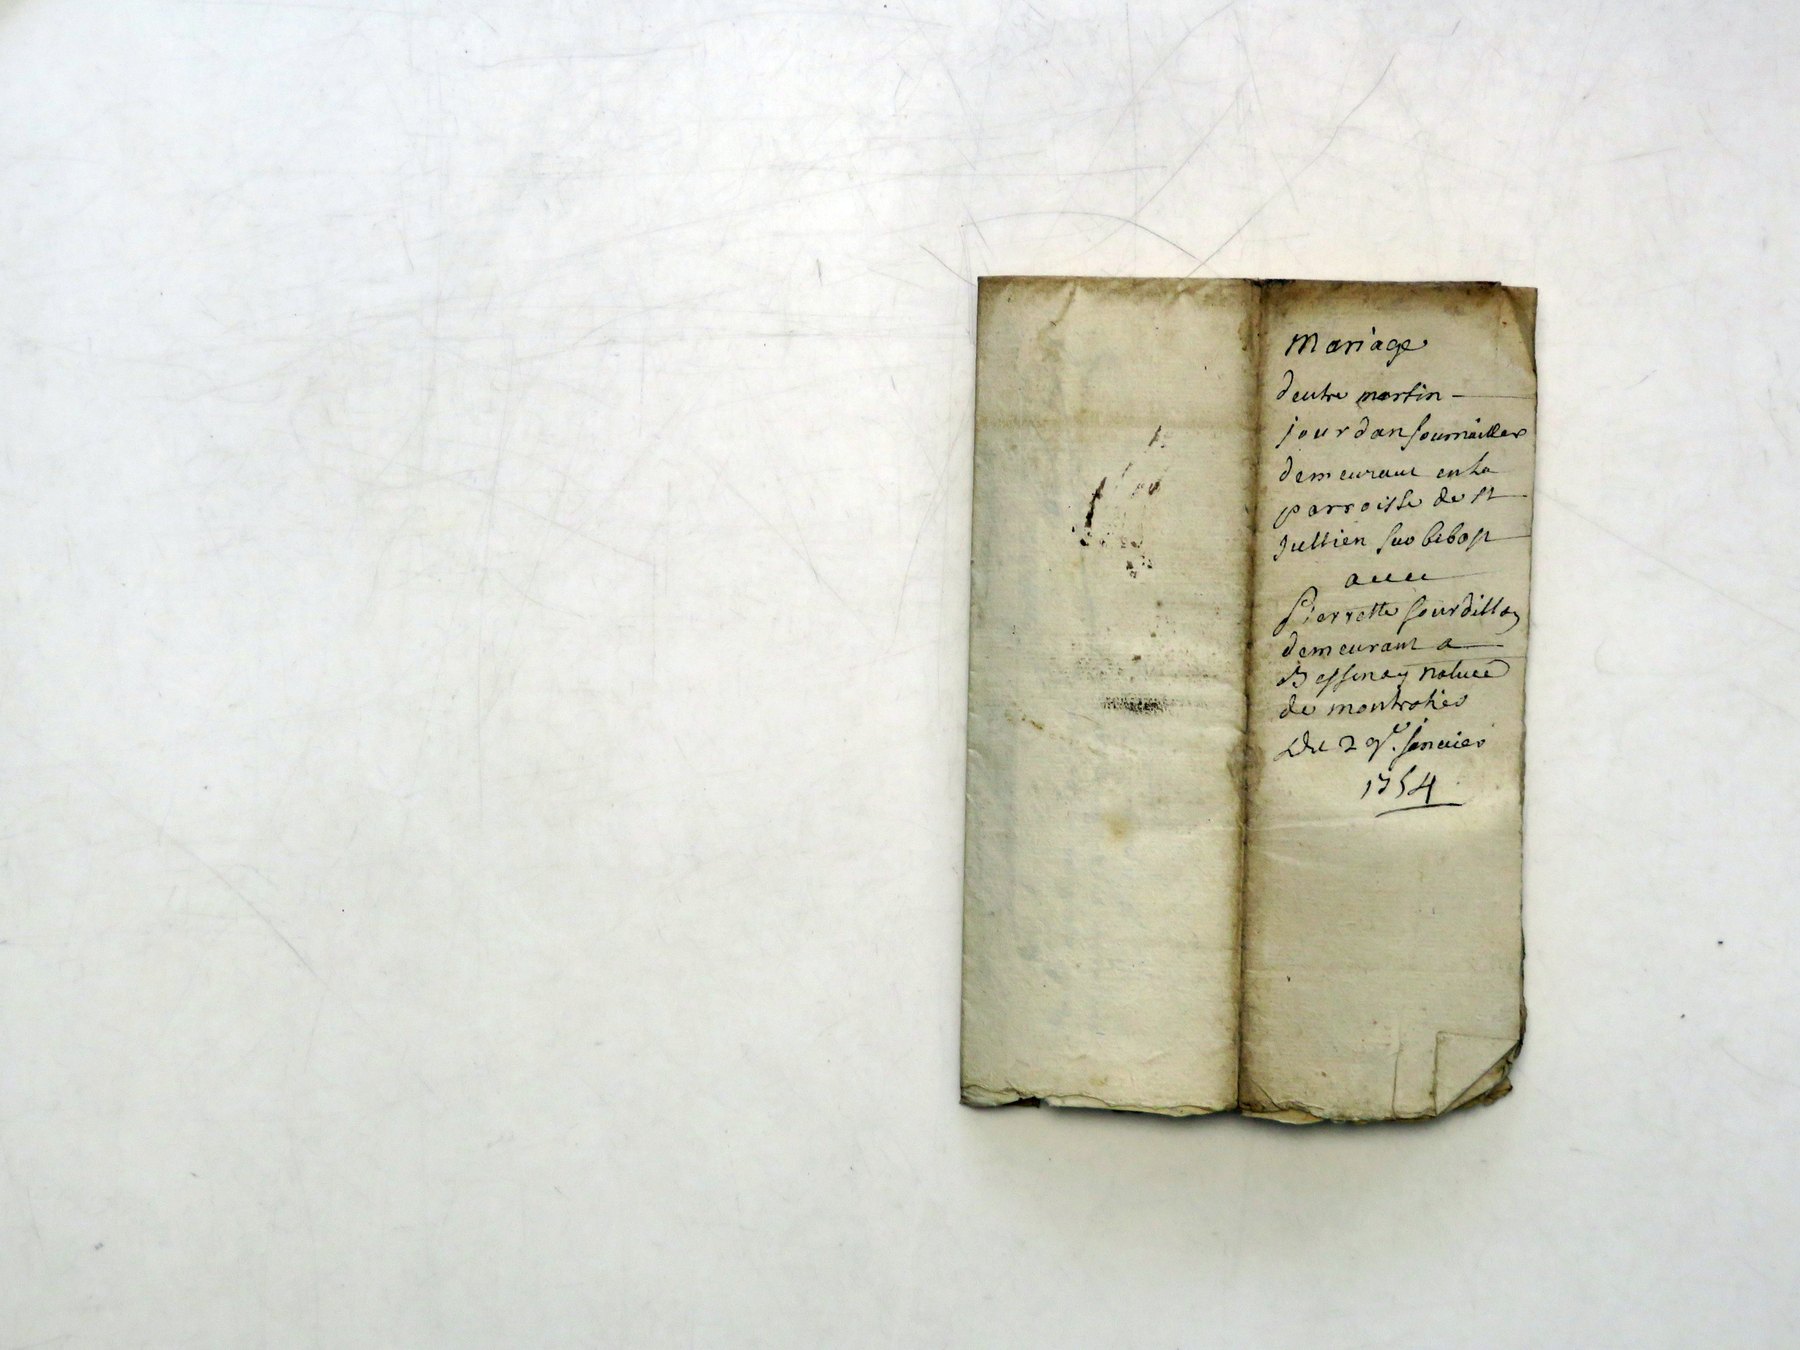 Mariage
dentre martin
jourdan fournillier
demeurant en la
parroisse de st
Jullien sur bibost
avec
Pierrette sourdillon
demeurant a
Bessenay natives
de montrotier
Du 29e. janvier
1754